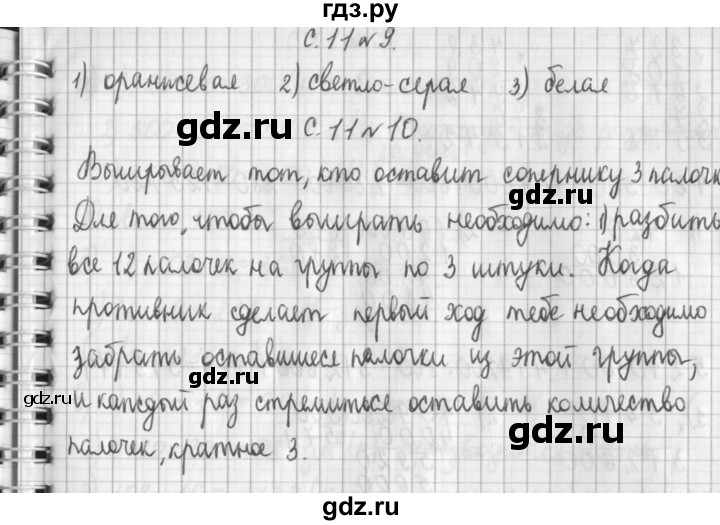 гдз.ру
с. 11 №9.
1) оранжевая 2) светло-серая 3) белая
gdz.ru
с. 11 №10.
Выигрывает тот, кто оставит сопернику 3 палочк
gdz.ru
Для того, чтобы выиграть необходимо: 1) разбить
все 12 палочек на группы по 3 штуки. Когда
противник сделает первый ход тебе необходимо
забрать оставшиеся палочки из этой группы,
gdz.ru
gdz.ru
и каждый раз стремиться оставить количество
gdz.ru
палочек, кратное 3.
gdz.ru